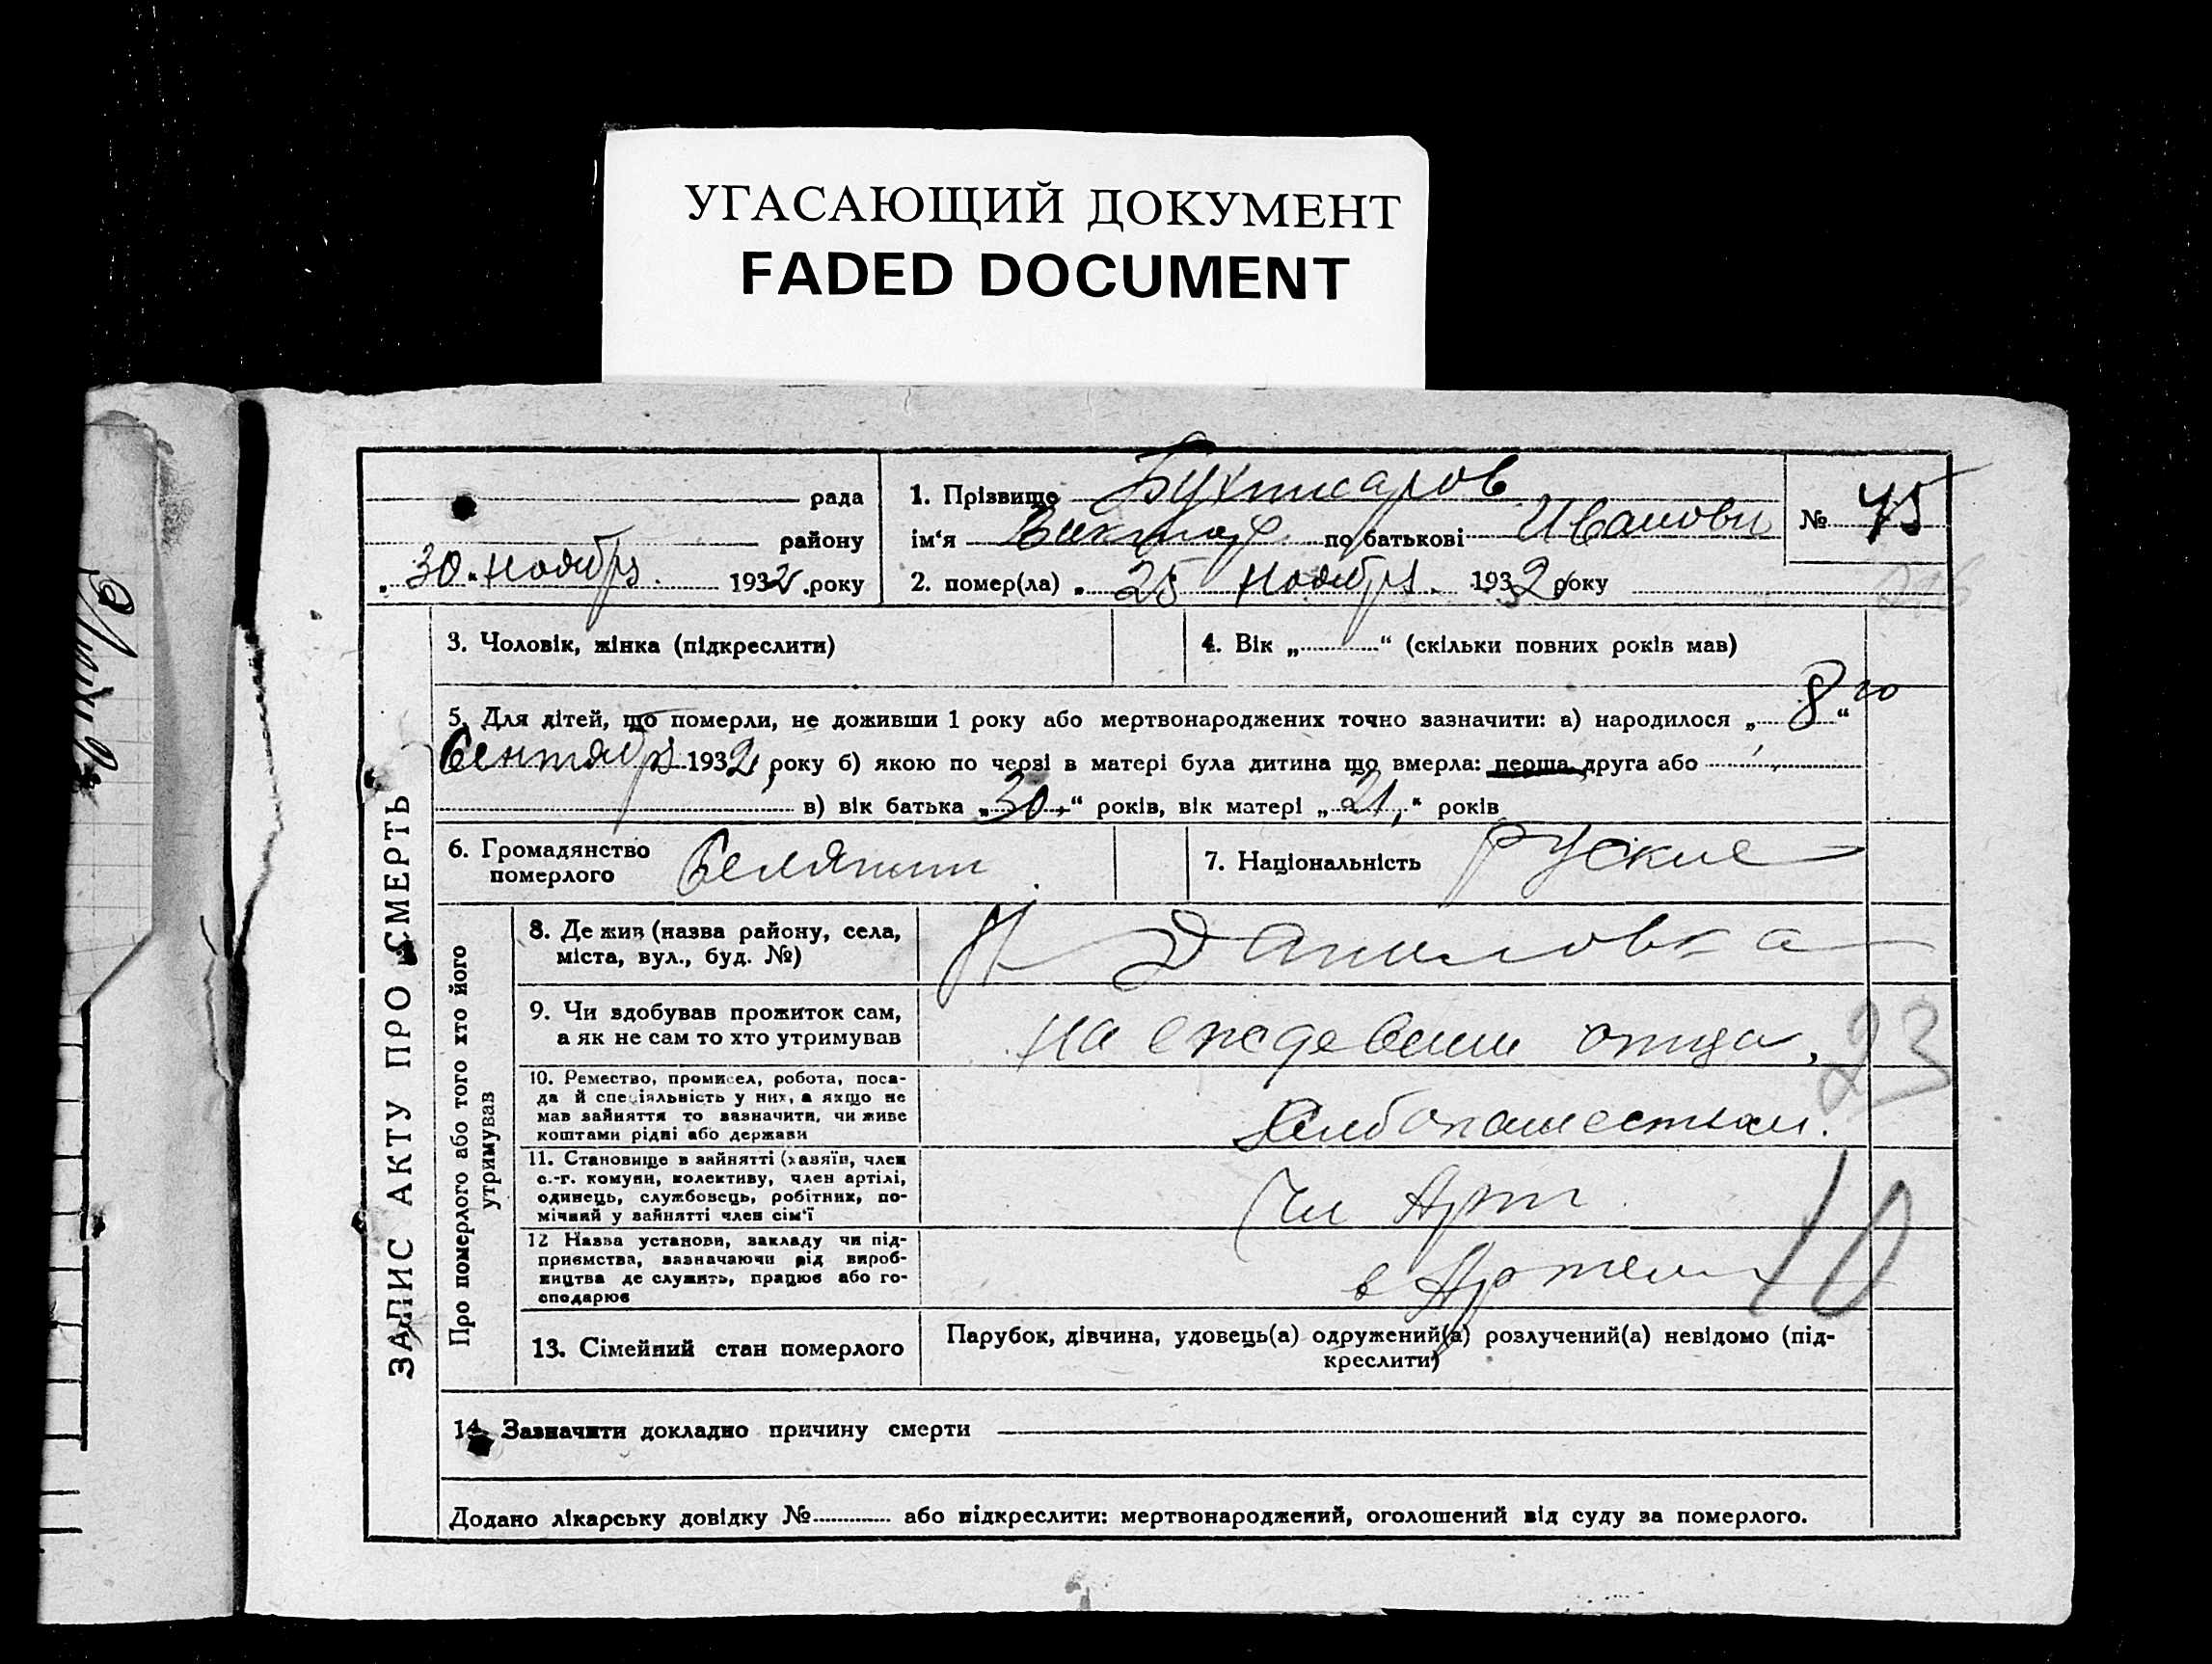 УГАСАЮЩИЙ ДОКУМЕНТ
FADED DOCUMENT
рада
району
„30“ ноября 1932 .року
1. Прізвище Бухтияров
ім‘я Виктор по батькові Иванови
2. помер(ла) „ 25 ноября. 1932 року
№ 45
ЗАПИС АКТУ ПРО СМЕРТЬ
3. Чоловік, жінка (підкреслити)
4. Вік „ “ (скільки повних років мав)
5. Для дітей, що померли, не доживши 1 року або мертвонароджених точно зазначити: а) народилося „ 8 го “
Сентября 1932, року б) якою по черзі в матері була дитина що вмерла: перша друга або
в) вік батька „30“ років, вік матері „21,“ років
6. Громадянство
померлого
Селянин
7. Національність руские
Про померлого або того хто його
утримував
8. Де жив (назва району, села,
міста, вул., буд. №)
Даниловка
9. Чи здобував прожиток сам,
а як не сам то хто утримував
на еждевении отца,
23
10. Ремество, промисел, робота, поса-
да й спеціяльність у них, а якщо не
мав зайняття то зазначити, чи живе
коштами рідні або держави
11. Становище в зайнятті (хазяїн, член
с.-г. комуни, колективу, член артілі,
одинець, службовець, робітник, по-
мічний у зайнятті член сім‘ї
Чл Арт
10
12 Назва установи, закладу чи під-
приємства, зазначаючи рід вироб-
ництва де служить, працює або го-
сподарює
в Артели
13. Сімейний стан померлого
Парубок, дівчина, удовець(а) одружений(а) розлучений(а) невідомо (під-
креслити)
14. Зазначити докладно причину смерти
Додано лікарську довідку № або підкреслити: мертвонароджений, оголошений від суду за померлого.